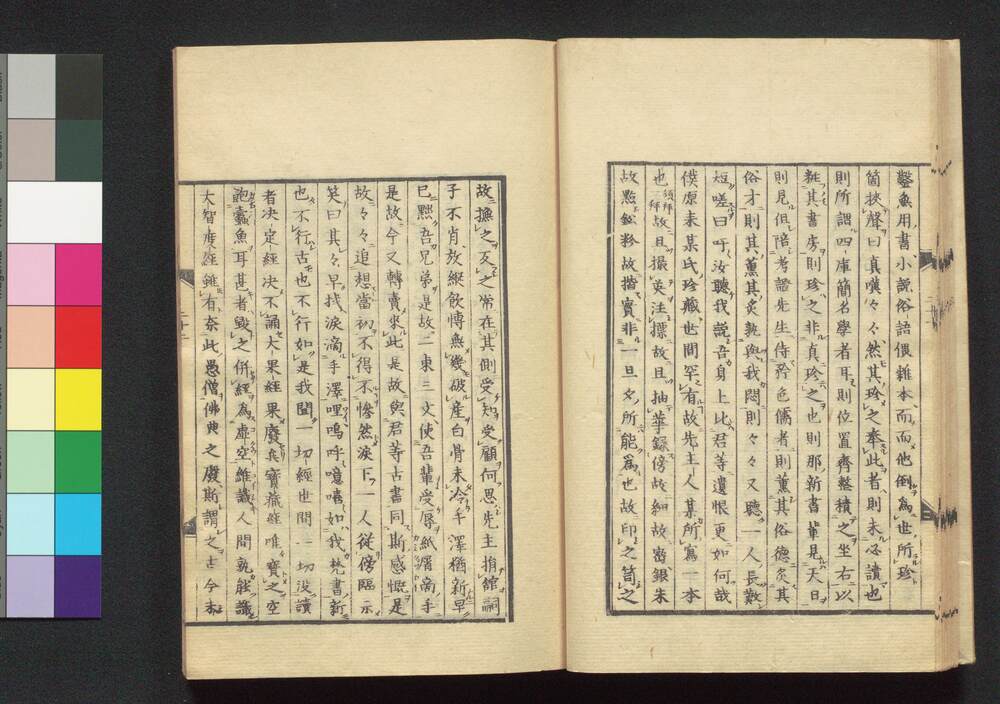 蠧魚用書、小説俗語偎雜本、而而他倒為世所珍
箇挾聲曰真嘆々々、然其珍之奉此者、則未必讀也
則所謂四庫簡名學者耳則位置齊整積之坐右以
其書房則珍之非真珍之也則那新書輩見天日
則見但陪考證先生侍矜色儒者則薫其俗德灸其
俗才則其薫其灸孰與我悶則々又聽一人長歎
短嗟曰吁汝聽我說吾身上比君等遺恨更如何哉
僕原某氏珍藏世間罕有故先主人某所寫一本
也故且撮英注標故且抽華錄傍故細故密銀朱
故點鉛粉故揩實非一旦夕所能為也故印之笥之
故之之常在其側受知受顧何思先主捐館嗣
子不肖放縱飲博無幾破產白骨未冷手澤猶新早
已點吾兄弟是故二東三文使吾輩受辱紙屑商手
是故今又轉賣來此是故與君等古書同斯感慨是
故々々追想當初不得不慘然淚下一人從傍隔示
笑曰其々早找淚滴手澤哩嗚呼噫嘻如我梵書新
也不行古也不行如是我聞一切經也間一切没讀
者决定經决不誦大果經果廢無寶藏經唯寶之空
飽蠧魚耳甚者毀之併經為虛空維識人間孰能識
大智度經雖有奈此愚僧佛典之廢斯謂之古今未